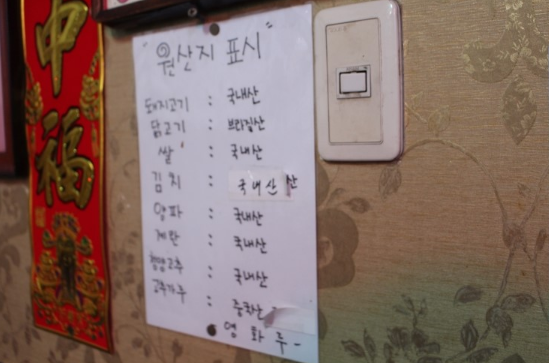 中
福
"원산지 표시"
돼지고기 : 국내산
닭고기 : 브라질산
쌀 : 국내산
김치 : 국내산산
양파 : 국내산
계란 : 국내산
청양고추 : 국내산
고추가루 : 중국산
영화루-